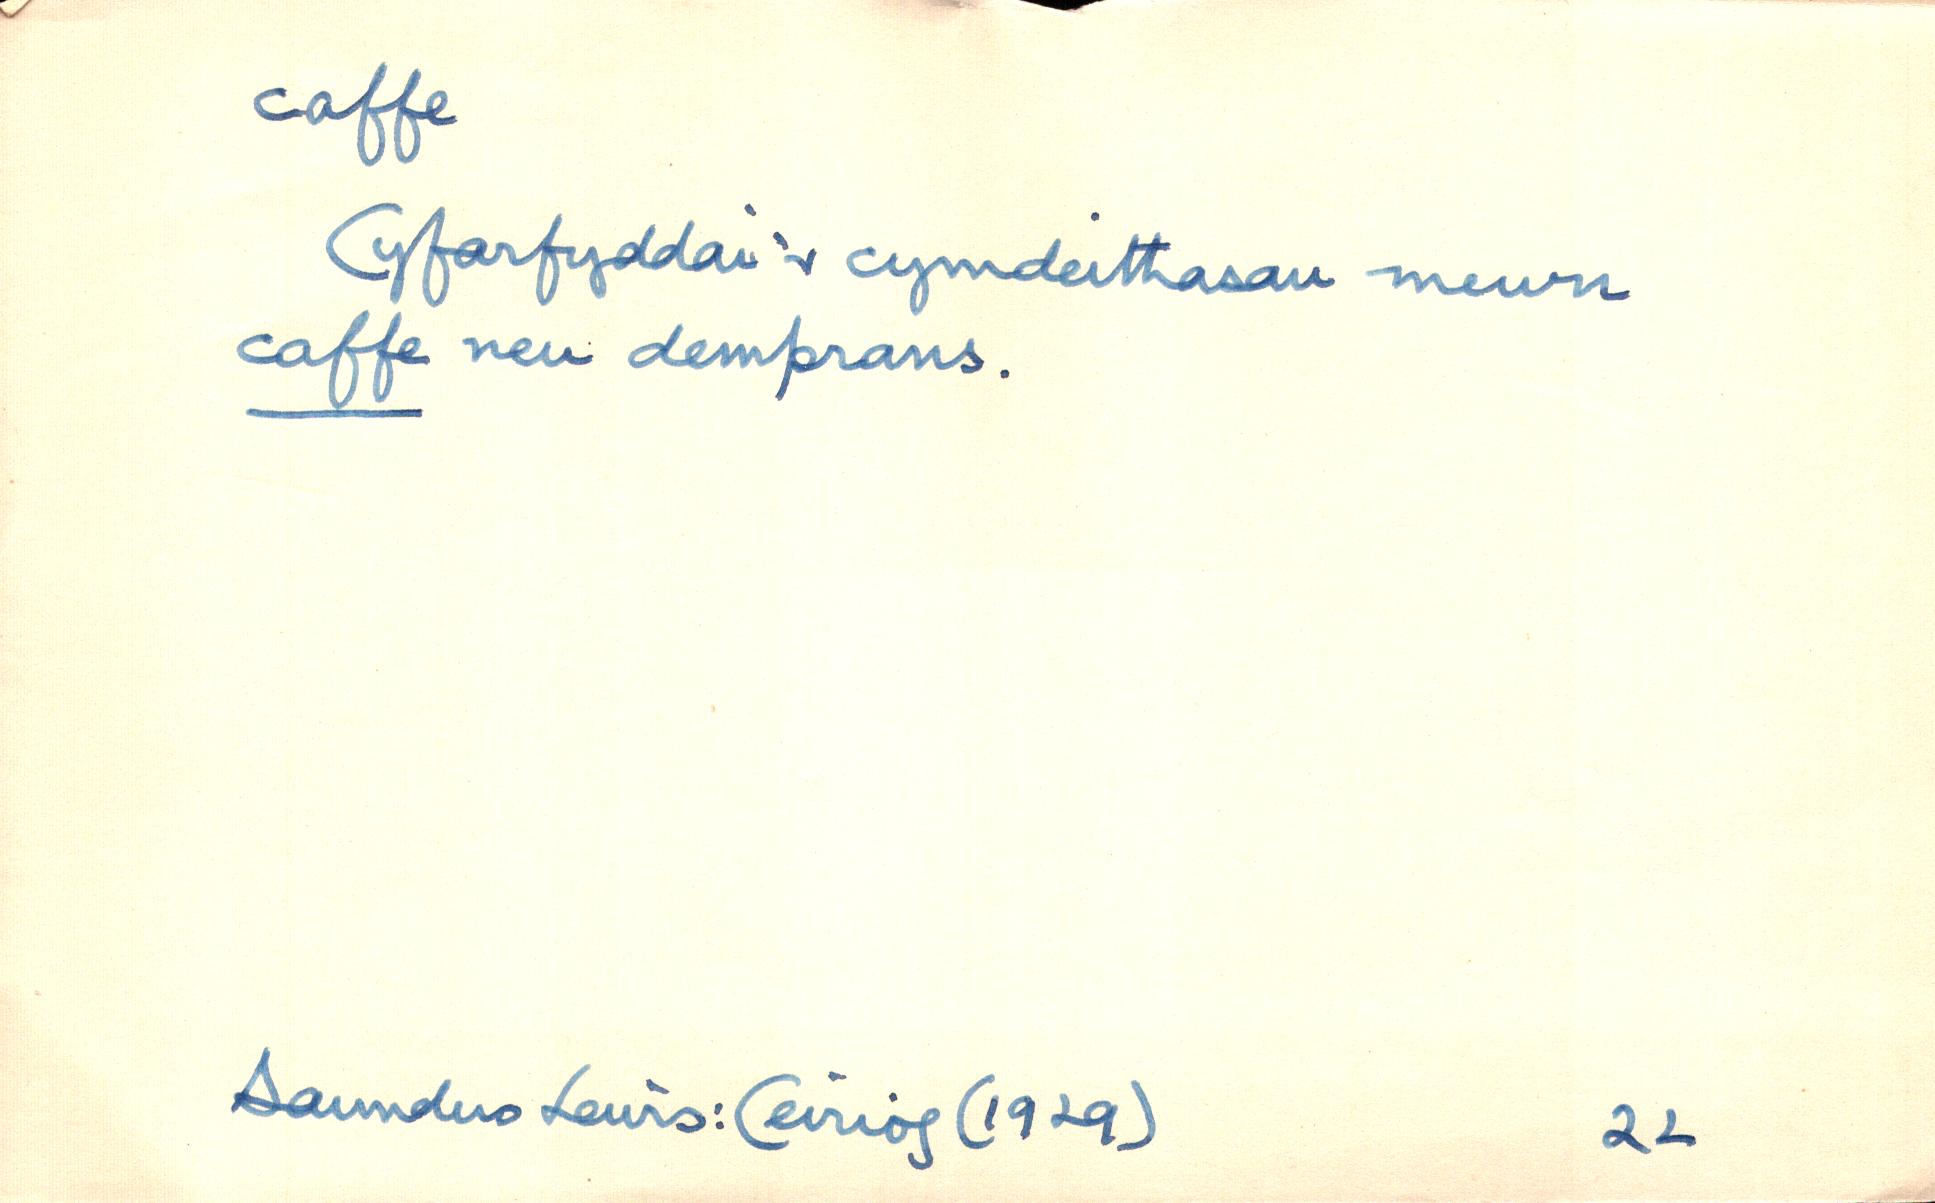 caffe
Cyfarfyddai'r cymdeithasau mewn
caffe neu demprans.
Saunders Lewis: Ceiriog (1929) 22